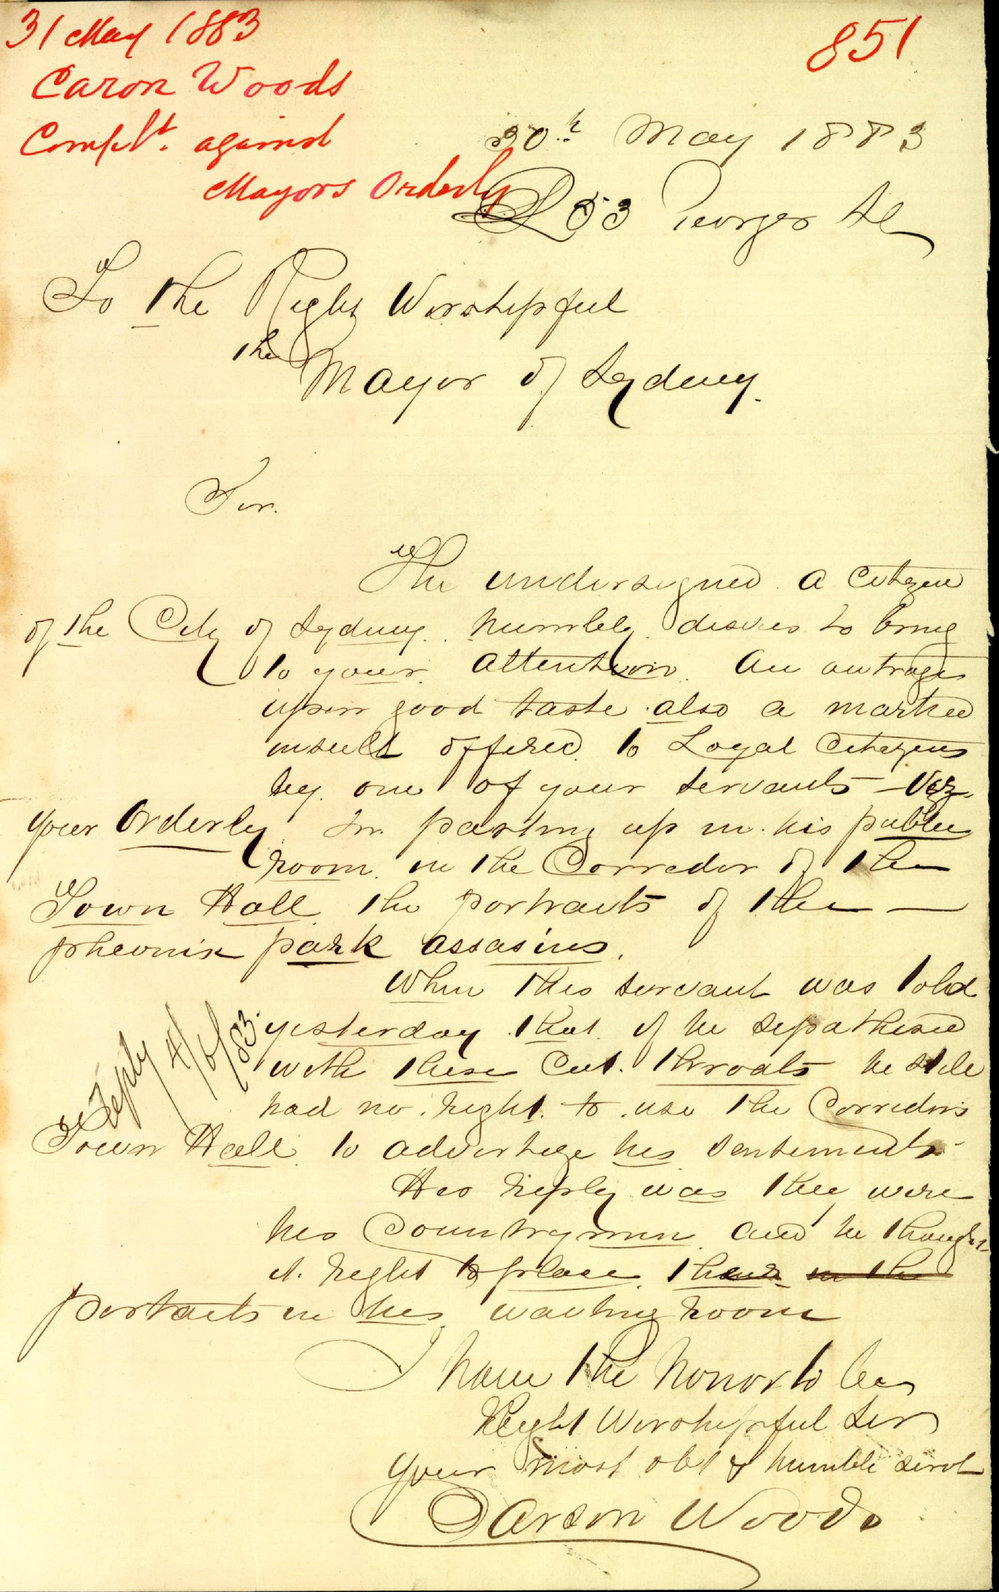 31 May 1883
851
Caron Woods
Complt. against
Mayors Orderly
30th May 1883
253 George St
To the Right Worshipful
the Mayor of Sydney.
Sir.
The undersigned a Citizen
of the City of Sydney humbly desires to bring
to your attention An outrage
upon good taste also a marked
insult offered to Loyal Citizens
by one of your servants - Viz
your Orderly In pasting up in his public
room in the Corredor of the
Town Hall the portraits of the —
pheonix park assasins.
When this servant was told
yesterday that if he sepathised
with these Cut. throats he stile
had no right to use the Corredors
Reply 4/6/83.
Town Hall to advertize his sentiments
His reply was they were
his Countrymen and he thought
it right to place their in the
portraits in his waiting room
I have the honor to be
Right Worshipful Sir
your most obt & humble servt
Carson Woods